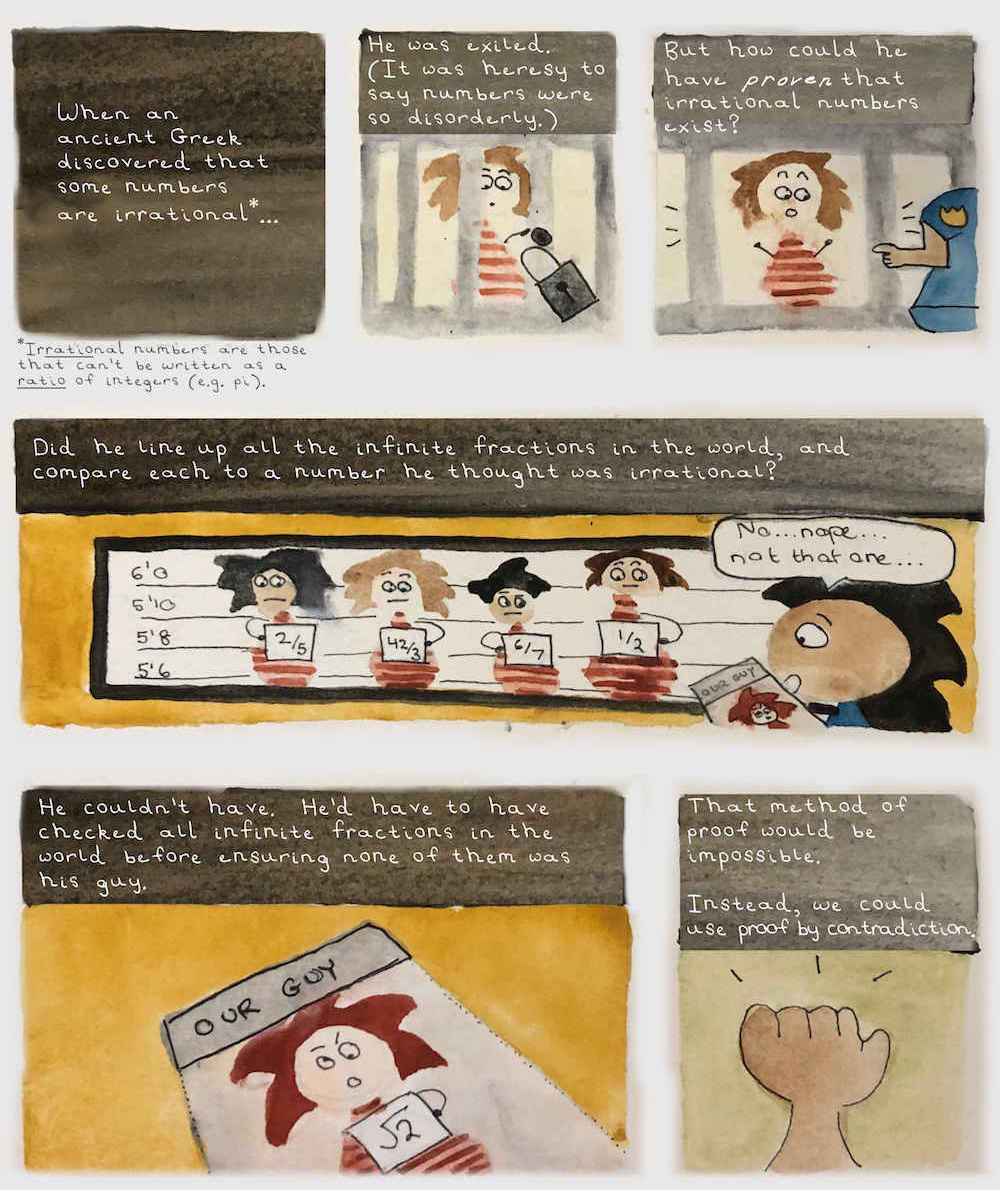 When an
ancient Greek
discovered that
some numbers
are irrational*...
*Irrational numbers are those
that can't be written as a
ratio of integers (e.g. pi).
He was exiled.
(It was heresy to
say numbers were
so disorderly.)
But how could he
have proven that
irrational numbers
exist?
Did he line up all the infinite fractions in the world, and
compare each to a number he thought was irrational?
No...nope...
not that one...
6'0
5'10
5'8
5'6
2/5
42/3
6/7
1/2
OUR GUY
He couldn't have. He'd have to have
checked all infinite fractions in the
world before ensuring none of them was
his guy.
OUR GUY
√2
That method of
proof would be
impossible.
Instead, we could
use proof by contradiction.